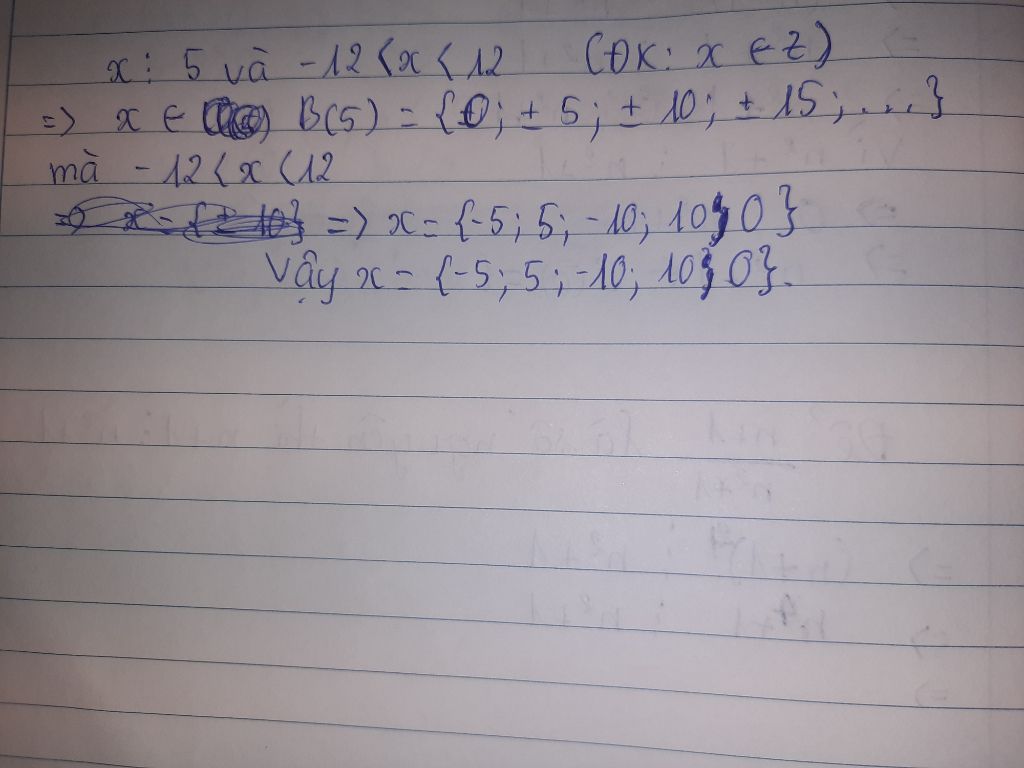 x ⋮ 5 và -12 < x < 12 (ĐK: x ∈ Z)
=> x ∈ B(5) = {0; ± 5; ± 10; ± 15; ...}
mà -12 < x < 12
=> x = {-5; 5; -10; 10; 0}
Vậy x = {-5; 5; -10; 10; 0}.